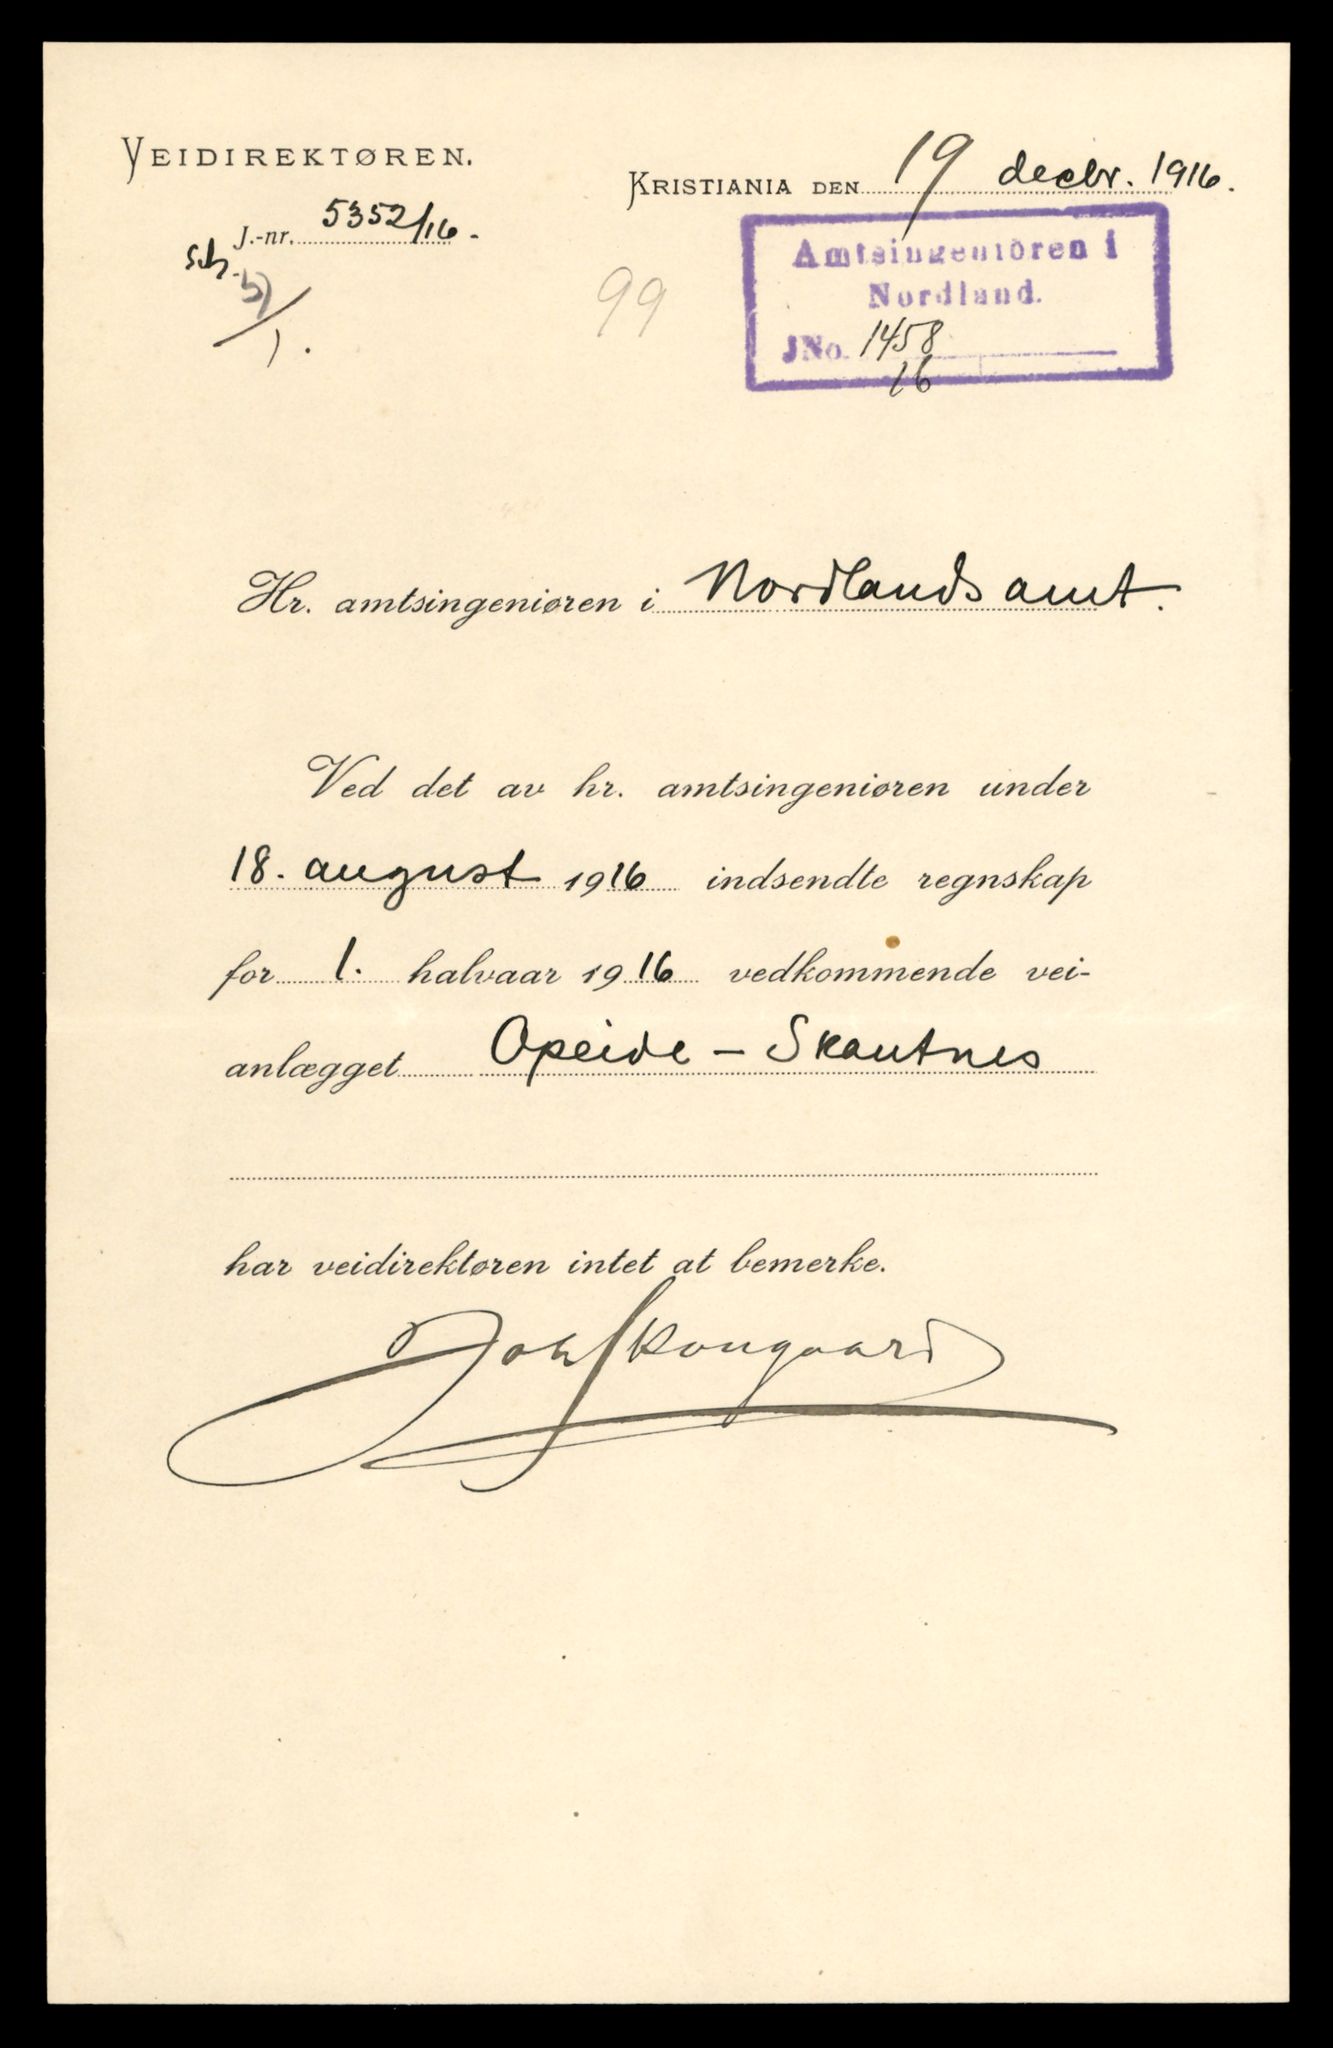 VEIDIREKTØREN.
KRISTIANIA DEN 19 decbr. 1916.
J.-nr. 5352/16.
Amtsingeniören i
Nordland.
JNo. 1458
16
99
Hr. amtsingeniøren i Nordlands amt.
Ved det av hr. amtsingeniøren under
18. august 1916 indsendte regnskap
for 1. halvaar 1916 vedkommende vei-
anlægget Opeide - Skautnes
har veidirektøren intet at bemerke.
Joh Skougaard